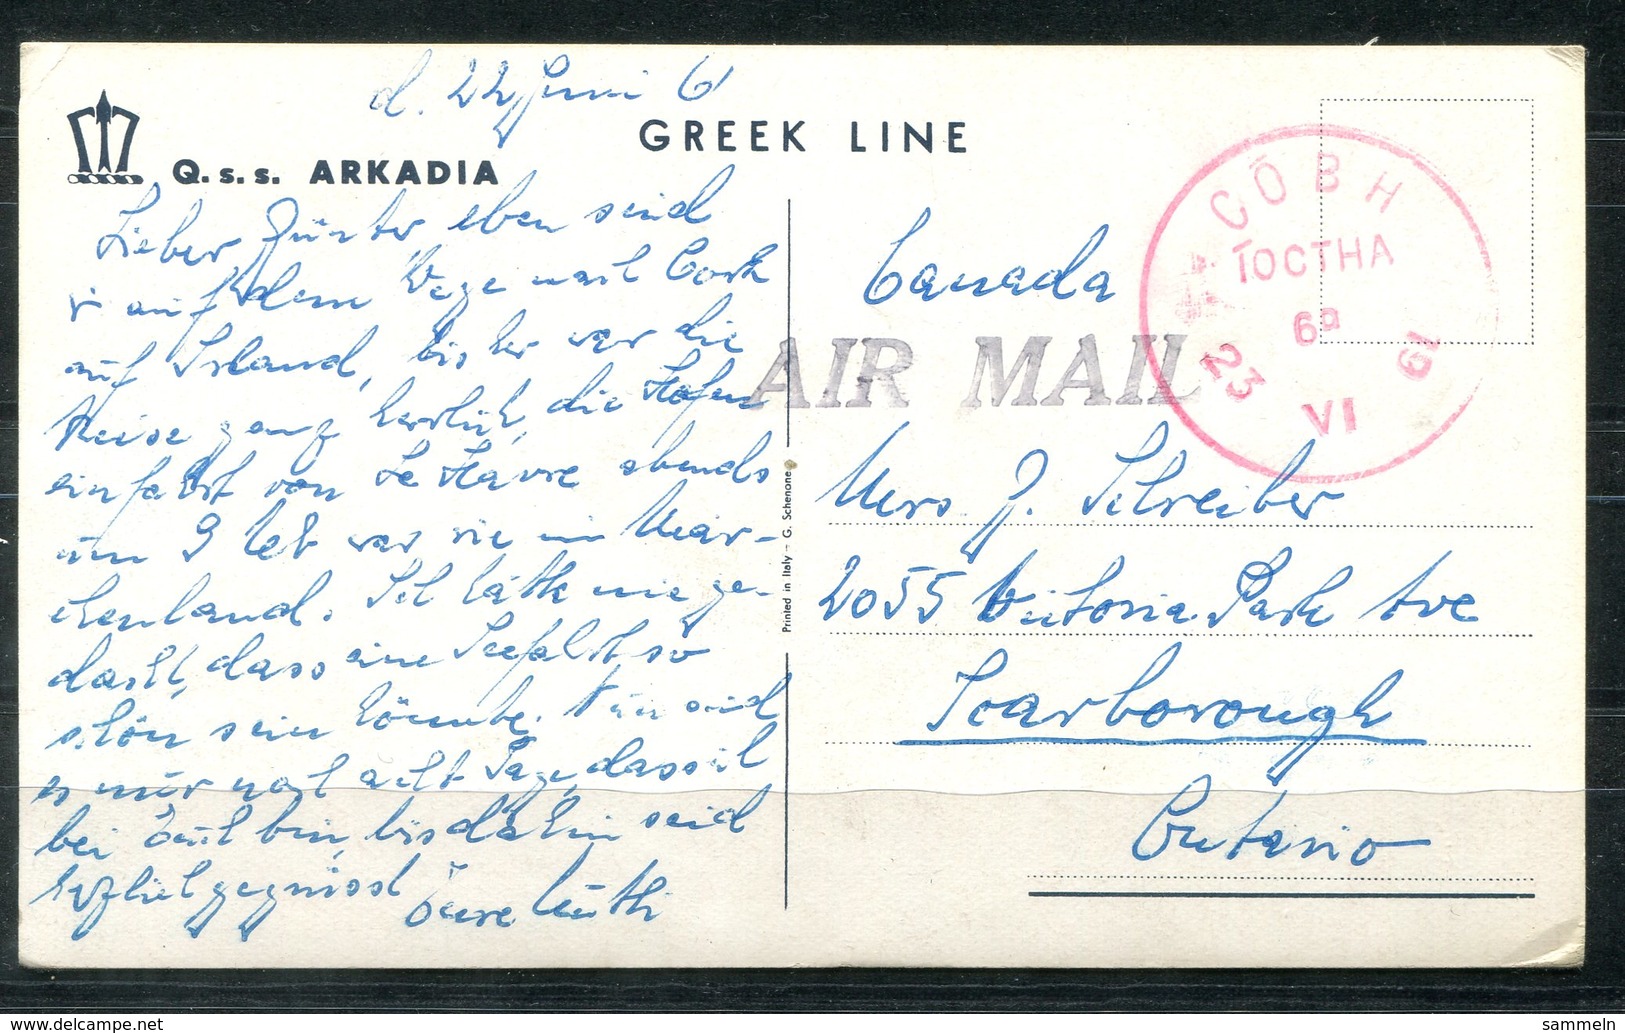 d. 22 Juni 61
GREEK LINE
Q.s.s. ARKADIA
Lieber Günter eben sind
wir auf dem Wege nach Cork
auf Irland, bisher war die
Reise ganz herrlich, die Hafen
einfahrt von Le Havre abends
um 9 Uhr war wie im Mär-
chenland. Ich hätte nie ge-
dacht, dass eine Seefahrt so
schön sein könnte. Nun sind
es nur noch acht Tage, dass ich
bei Euch bin, bis dahin seid
herzlich gegrüsst Eure Mutti
Canada
AIR MAIL
Mers J. Schreiber
2055 Victoria Park Ave
Scarborough
Ontario
Printed in Italy - G. Schenone
CÓBH
ÍOCTHA
6a
23 VI 19
delcampe.net
sammeln